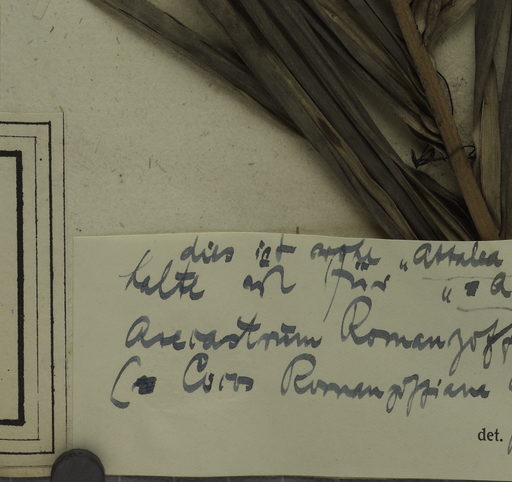 dies ist wohl „Attalea
halte ich für „
Arecastrum Romanzoff
(= Cocos Romanzoffiana
det.